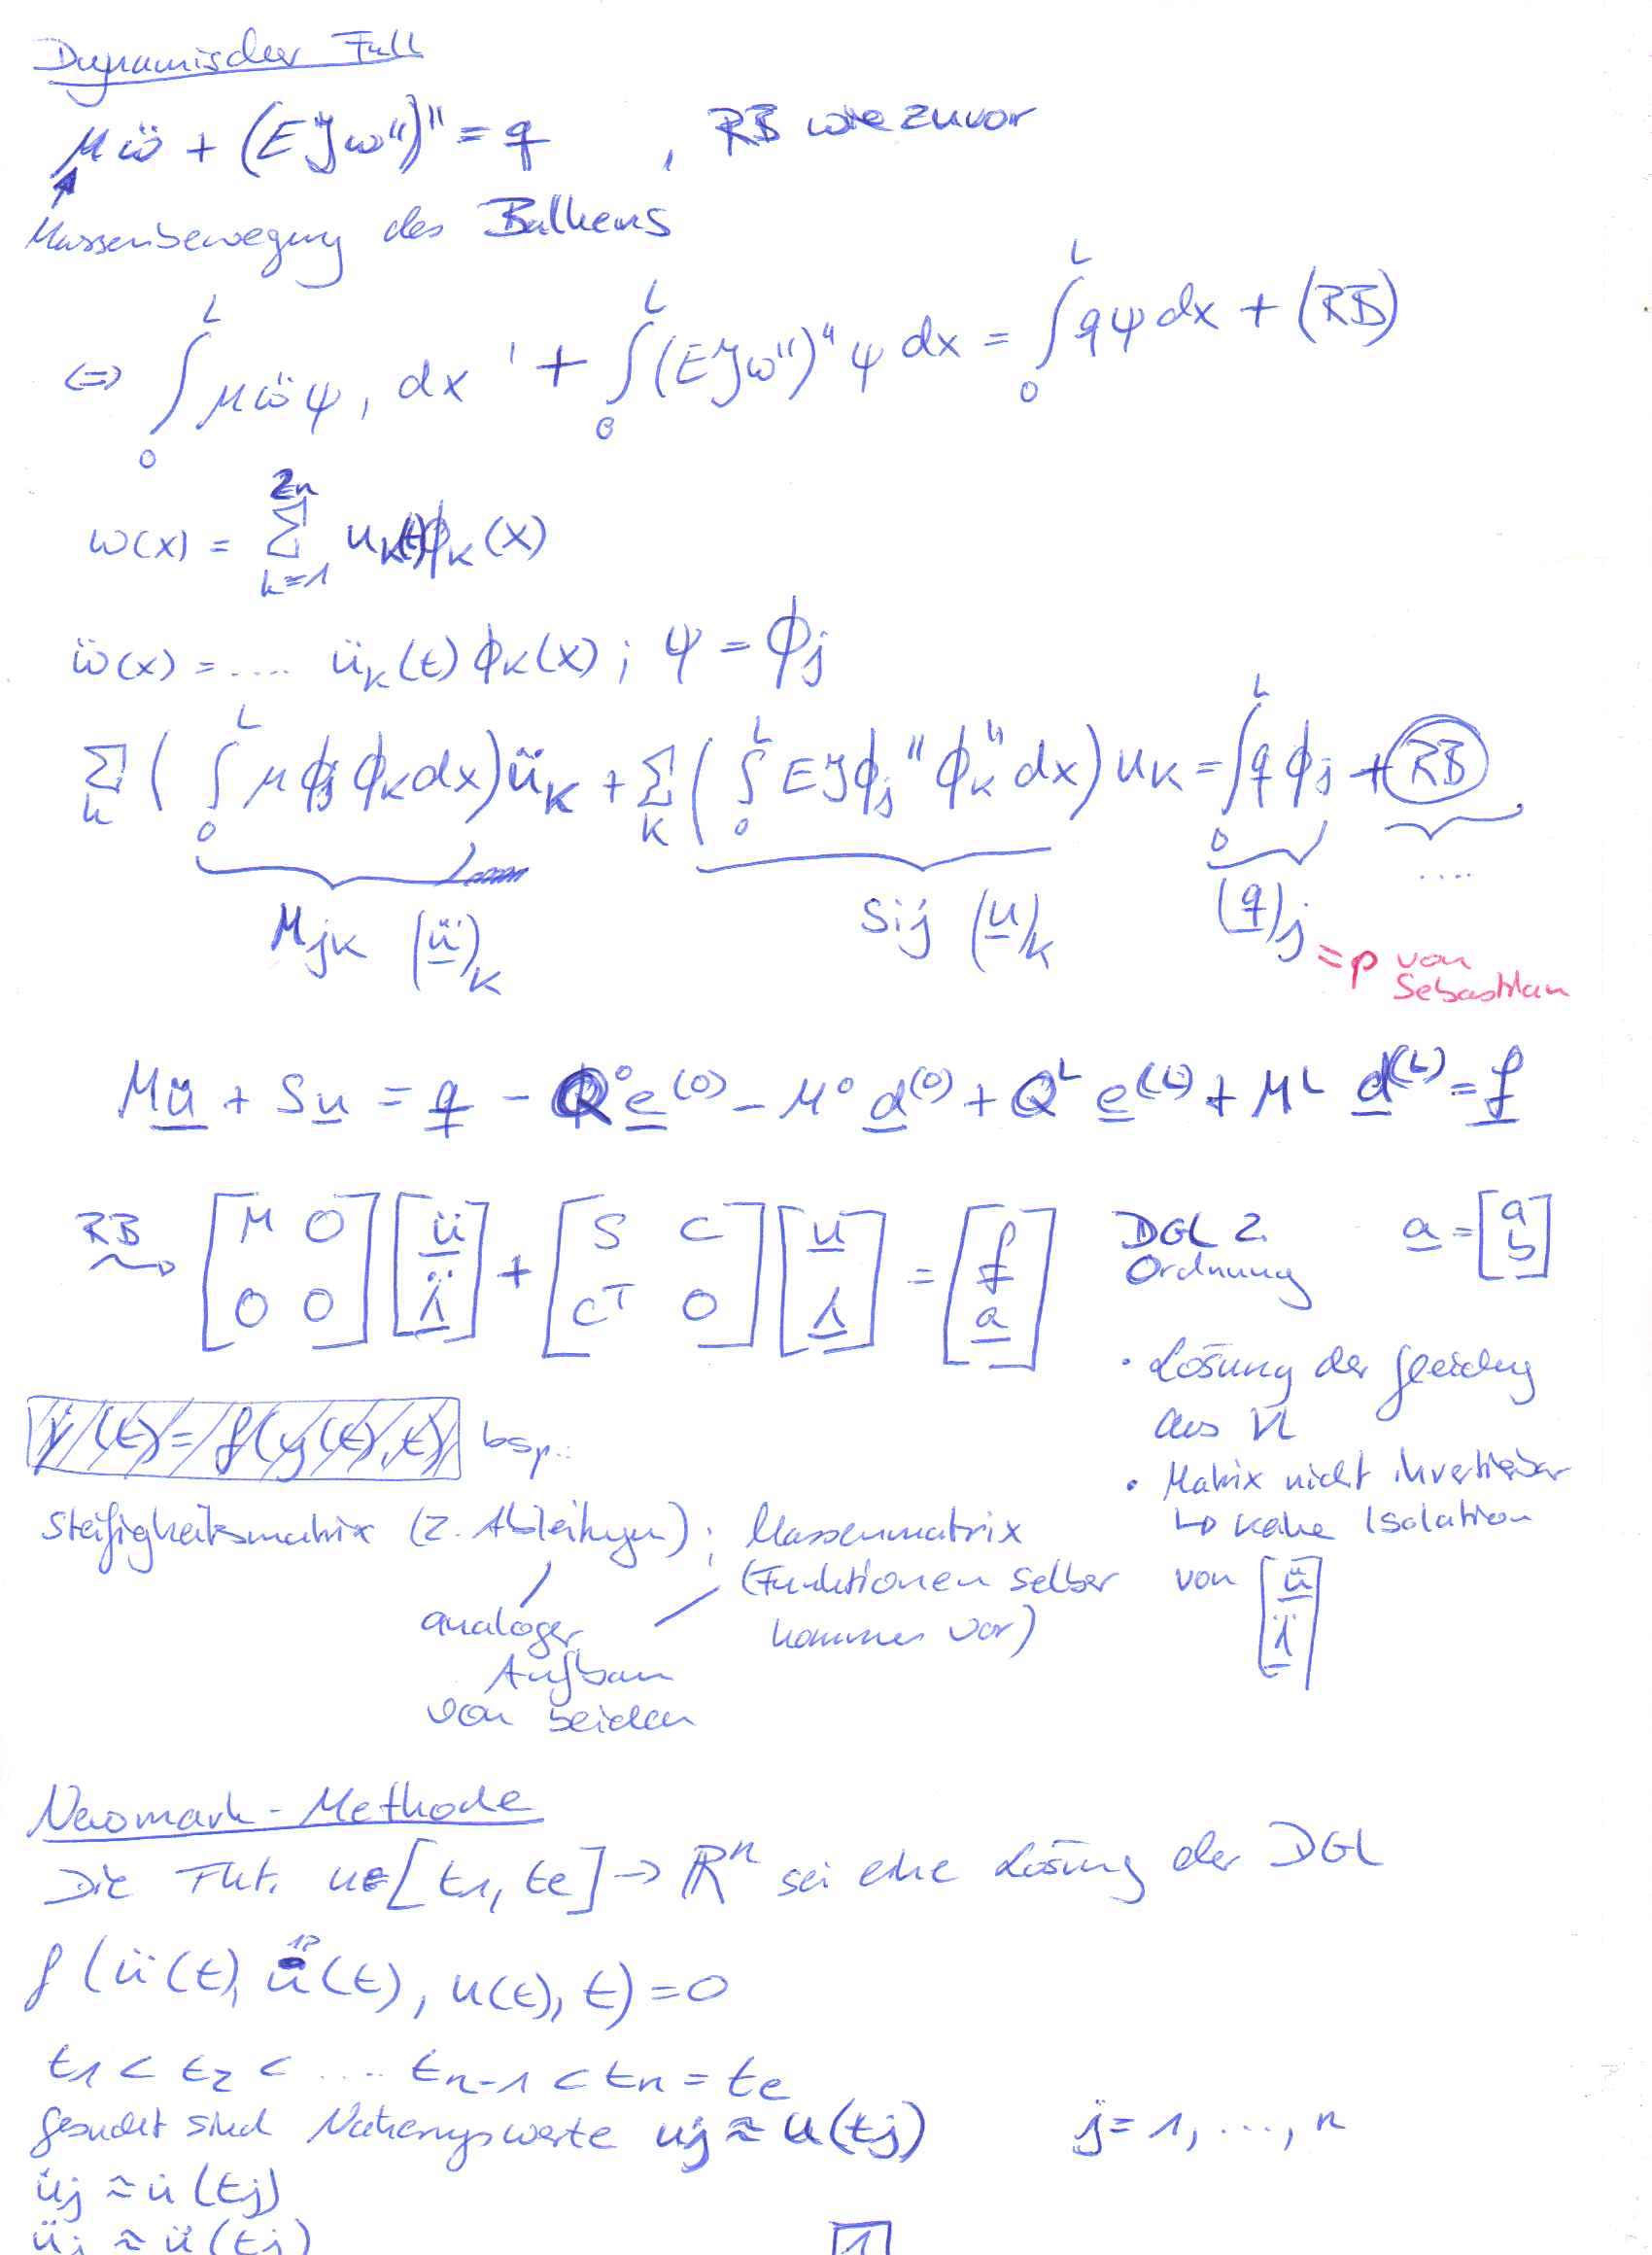 Dynamischer Fall
μẅ + (EJw'')'' = q , RB wie zuvor
Massenbewegung des Balkens
<=> ∫₀ᴸ μẅψ, dx + ∫₀ᴸ (EJw'')'' ψ dx = ∫₀ᴸ qψ dx + (RB)
w(x) = Σ_{k=1}^{2n} u_k(t) ϕ_k(x)
ẅ(x) = .... ü_k(t) ϕ_k(x) ; ψ = ϕ_j
Σ_k ( ∫₀ᴸ μ ϕ_j ϕ_k dx) ü_k + Σ_k ( ∫₀ᴸ EJ ϕ_j'' ϕ_k'' dx) u_k = ∫₀ᴸ q ϕ_j + RB
M_jk (ü)_k S_ij (u)_k (q)_j ....
= p von Sebastian
Mü + Su = q - Q⁰ e^(0) - M⁰ d^(0) + Q^L e^(L) + M^L d^(L) = f
RB ⇝ [M 0; 0 0] [ü; λ̈] + [S C; C^T 0] [u; λ] = [f; a]
DGL 2. Ordnung a = [a; b]
• Lösung der Gleichg
aus VL
• Matrix nicht invertierbar
↳ keine Isolation
von [ü; λ̈]
ẏ(t) = f(y(t), t) bsp.:
Steifigkeitsmatrix (2. Ableitungen) ; Massenmatrix
(Funktionen selber
kommen vor)
analoger
Aufbau
von beiden
Newmark-Methode
Die Fkt. u: [t1, te] → ℝⁿ sei eine Lösung der DGL
f (ü(t), u̇(t), u(t), t) = 0
t1 < t2 < .... tn-1 < tn = te
gesucht sind Näherungswerte uj ≈ u(tj) j = 1, ..., n
u̇j ≈ u̇(tj)
üj ≈ ü(tj)
1